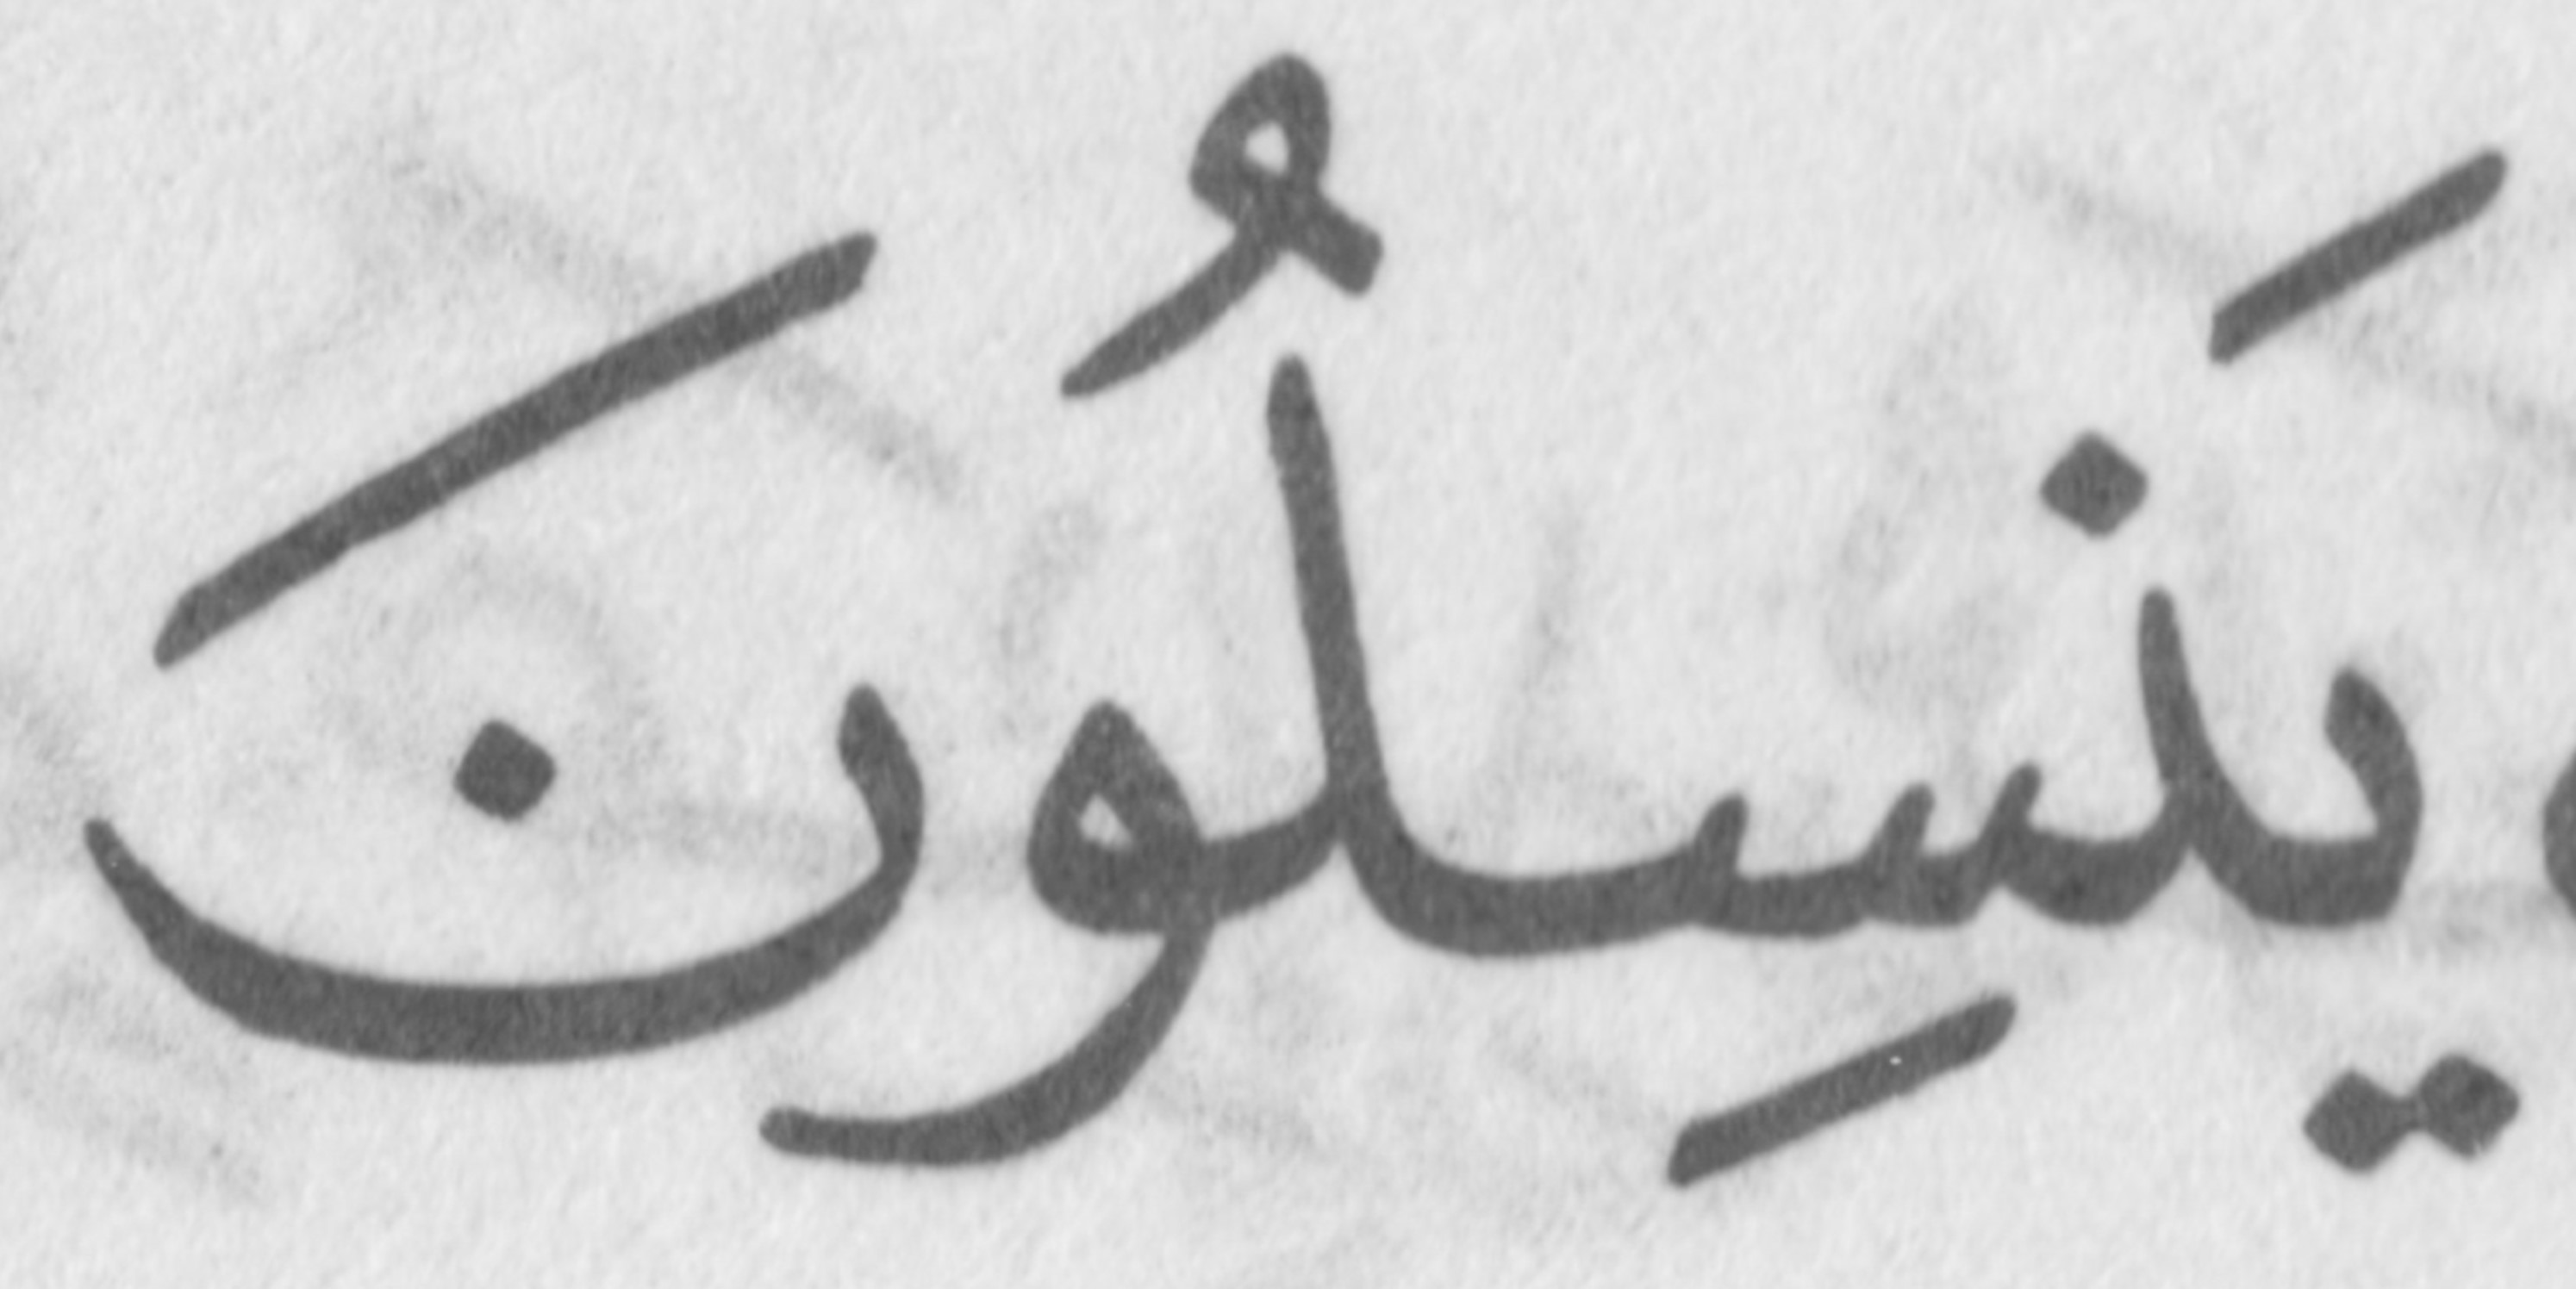 يَنسِلُونَ